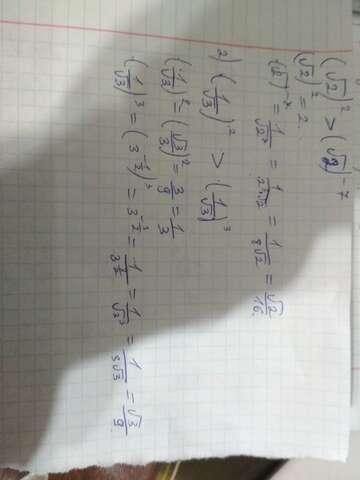 (√2)² > (√2)⁻⁷
(√2)² = 2.
(√2)⁻⁷ = 1/√2⁷ = 1/2³√2 = 1/8√2 = √2/16.
2) (1/√3)² > (1/√3)³
(1/√3)² = (√3/3)² = 3/9 = 1/3
(1/√3)³ = (3^(-1/2))³ = 3^(-3/2) = 1/3^(3/2) = 1/√3³ = 1/3√3 = √3/9